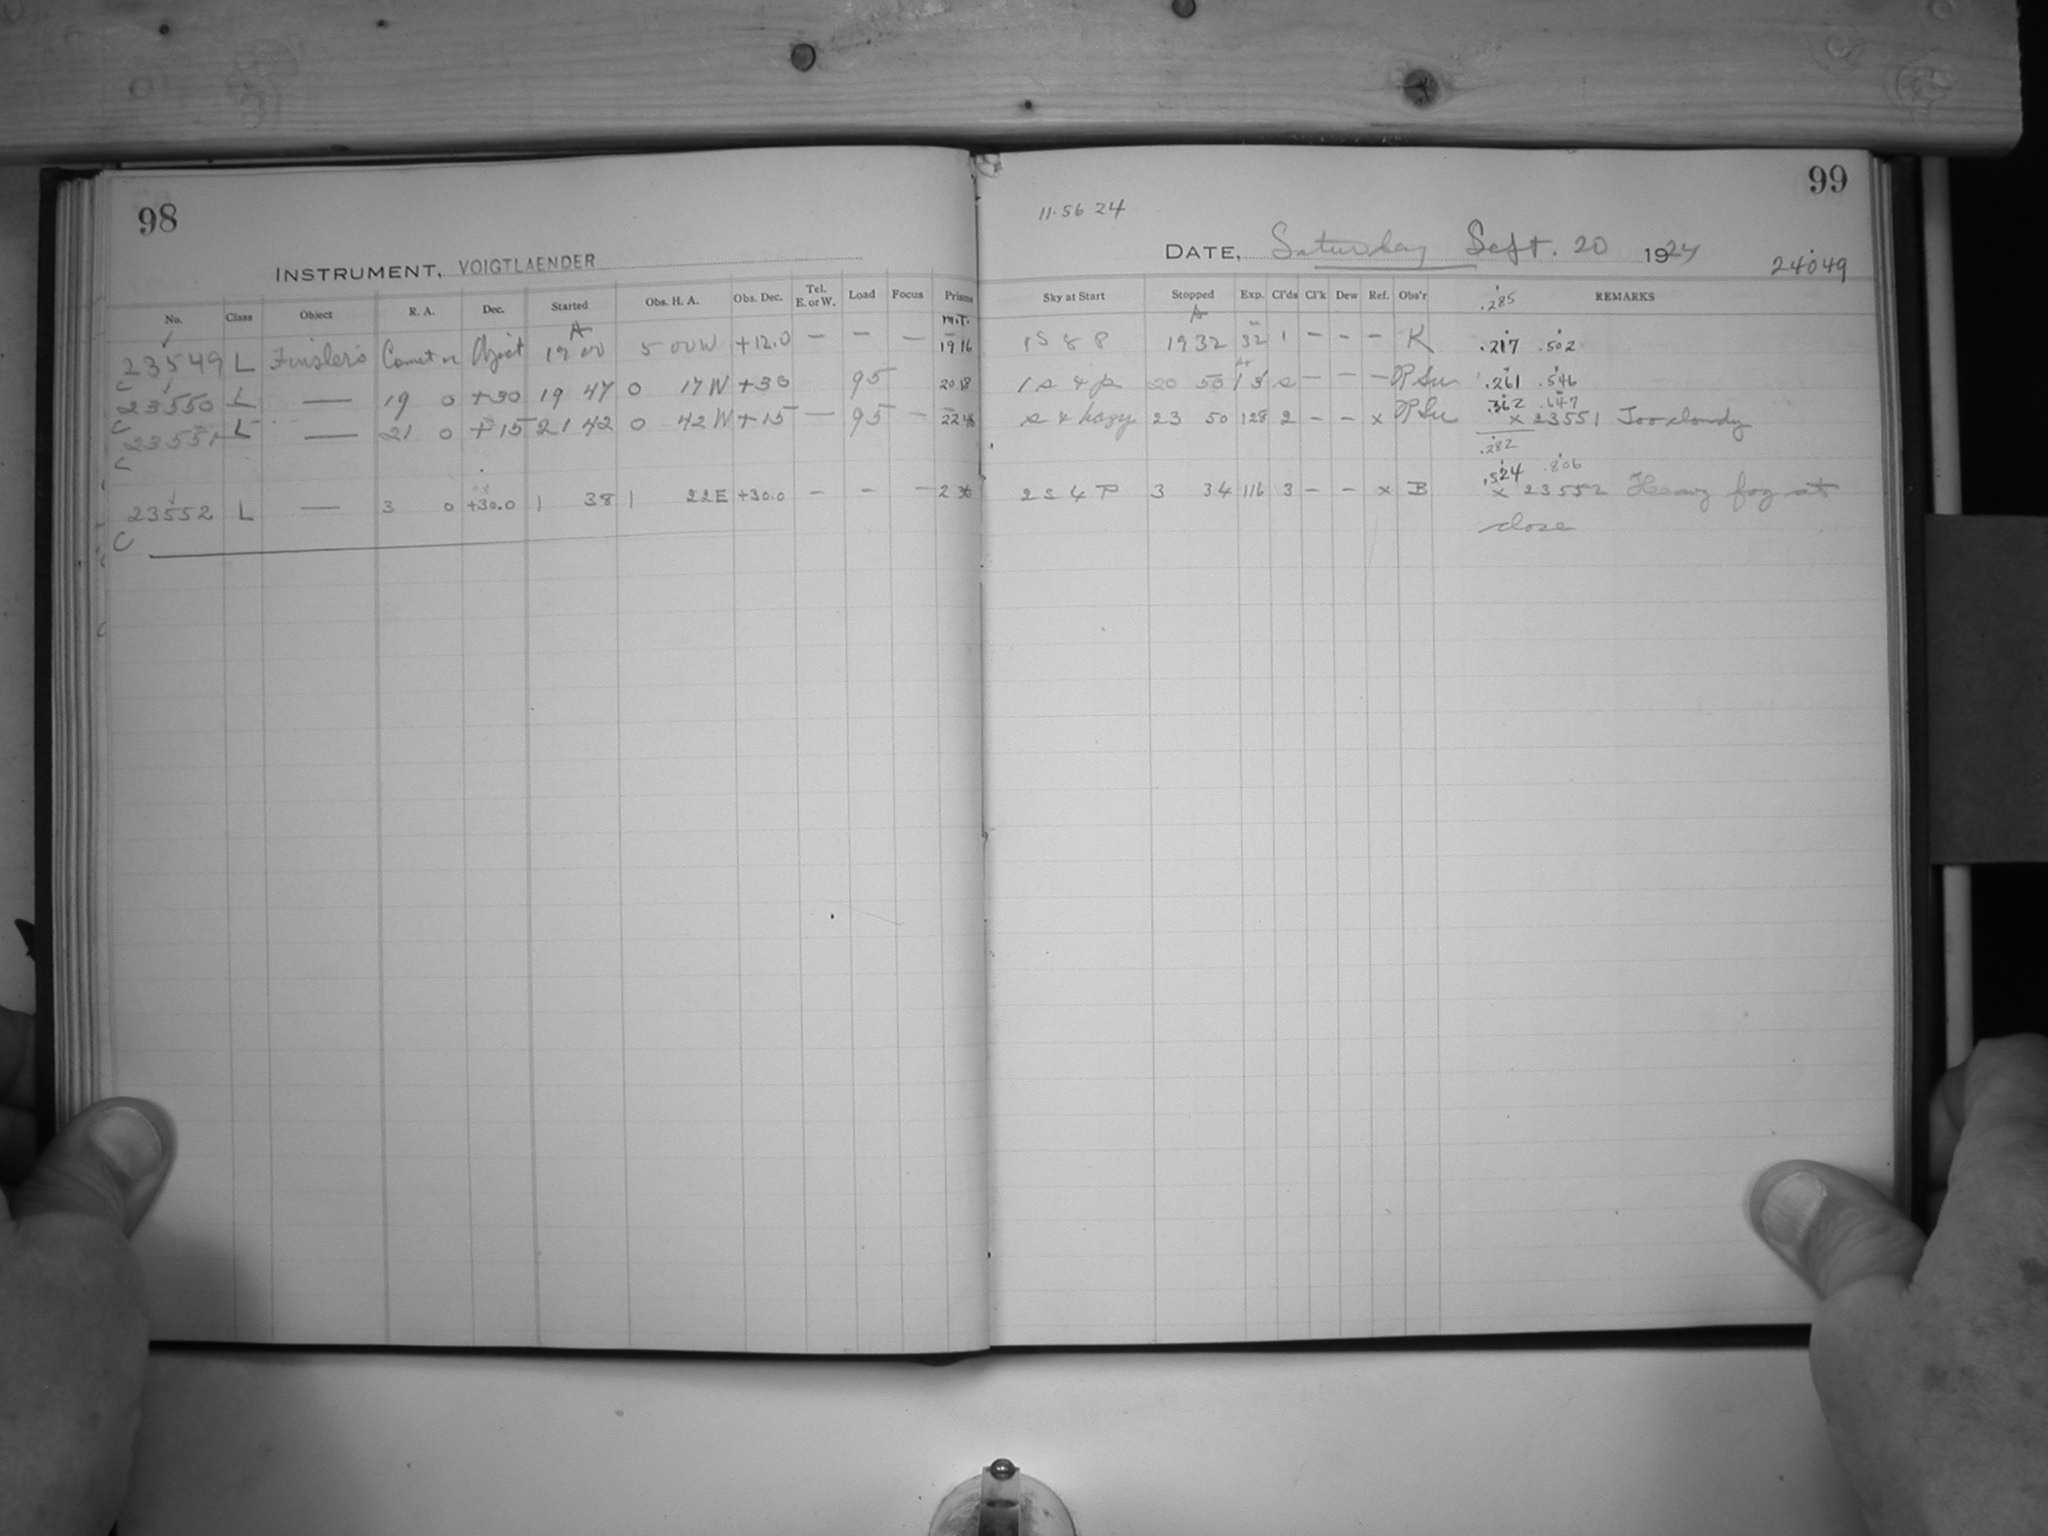 98
INSTRUMENT, VOIGTLAENDER
No. Class Object R. A. Dec. Started Obs. H. A. Obs. Dec. Tel. E. or W. Load Focus Prisms
A M.T.
23549 L Finsler's Comet or Object 19 00 5 00W +12.0 — — — 19 16
C 23550 L — 19 0 +30 19 47 0 17W +30 95 20 18
C 23551 L — 21 0 +15 21 42 0 42W +15 — 95 — 22 46
C
23552 L — 3 0 +30.0 1 38 1 22E +30.0 — — — 2 36
C
99
11.56 24
DATE, Saturday Sept. 20 1924
24049
Sky at Start Stopped Exp. Cl'ds Cl'k Dew Ref. Obs'r REMARKS
.285
A
1 S & P 19 32 32 1 — — — K .217 .502
1 s & p 20 50 s — — — .261 .546
.362 .647
s & hazy 23 50 128 2 — — x x 23551 Too cloudy
.282
.524 .806
2 S & P 3 34 116 3 — — x B x 23552 Heavy fog at
close